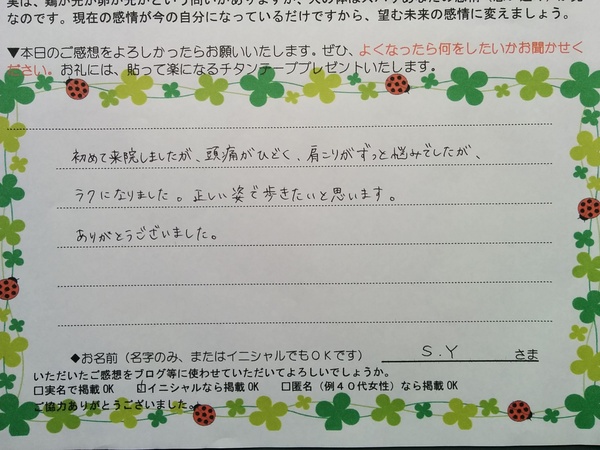 なのです。現在の感情が今の自分になっているだけですから、望む未来の感情に変えましょう。
▼本日のご感想をよろしかったらお願いいたします。ぜひ、よくなったら何をしたいかお聞かせく
ださい。お礼には、貼って楽になるチタンテーププレゼントいたします。
初めて来院しましたが、頭痛がひどく、肩こりがずっと悩みでしたが、
ラクになりました。正しい姿で歩きたいと思います。
ありがとうございました。
◆お名前（名字のみ、またはイニシャルでもＯＫです） S.Y さま
いただいたご感想をブログ等に使わせていただいてよろしいでしょうか。
□実名で掲載OK □イニシャルなら掲載OK □匿名（例４０代女性）なら掲載OK
ご協力ありがとうございました。